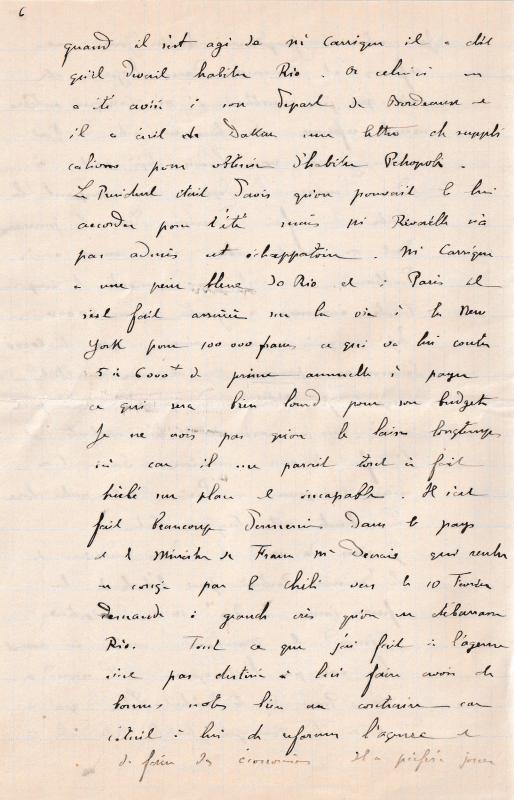 6
quand il s'est agi de Mr Carrique il a dit
qu'il devait habiter Rio. Or celui ci
a été avisé à son départ de Bordeaux et
il a écrit de Dakar une lettre de suppli
cations pour obtenir d'habiter Petropolis.
Le President était d'avis qu'on pouvait le lui
accorder pour l'été mais Mr n'a
pas admis cet échappatoire. Mr Carrique
a une peur bleue de Rio et à Paris il
s'est fait assurer sur la vie à la New
York pour 100 000 francs ce qui va lui couter
5 à 6000 f de prime annuelle à payer
ce qui sera bien lourd pour son budget.
Je ne crois pas qu'on le laisse longtemps
ici car il me parait tout à fait
sur place et incapable. Il s'est
fait beaucoup d'ennemis dans le pays
et le Ministre de France Mr qui rentre
en congé par le Chili vers le 10 Fevrier
demande à grands cris qu'on en debarrasse
Rio. Tout ce que j'ai fait à l'agence
n'est pas destiné à lui faire avoir de
bonnes notes bien au contraire car
c'était à lui de reformer l'agence et
de faire des économies il a préféré jouer